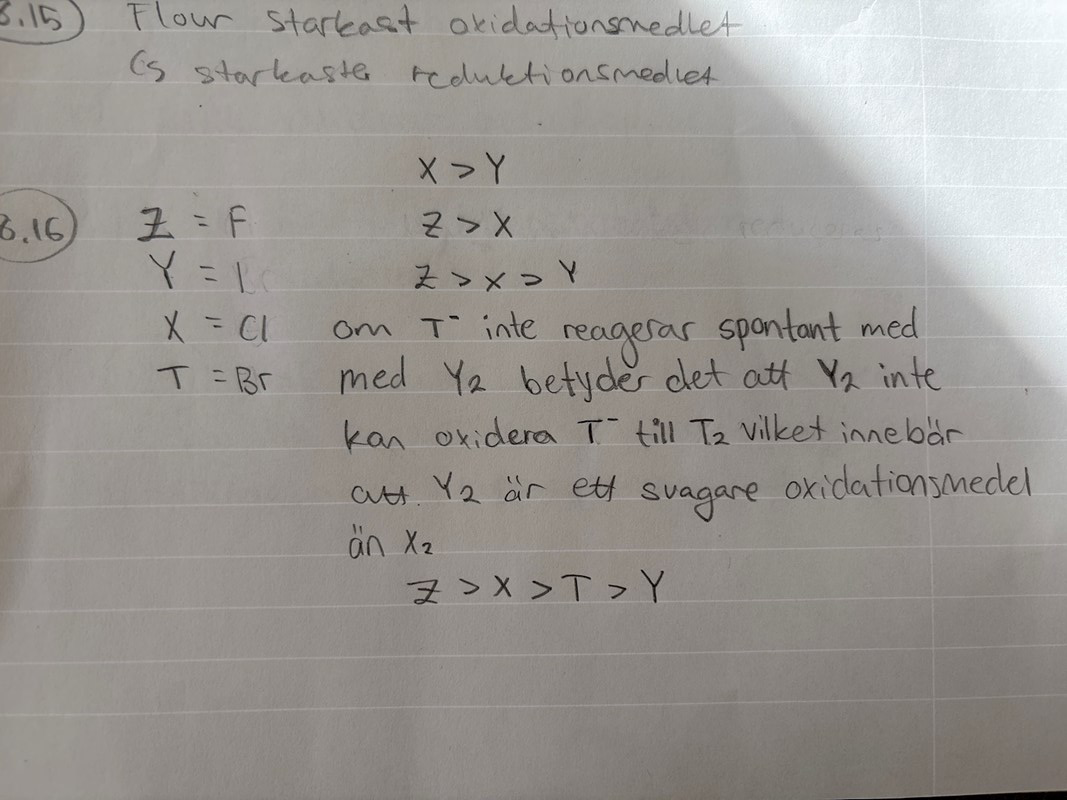 8.15) Flour starkast oxidationsmedlet
Cs starkaste reduktionsmedlet
X > Y
8.16 Z = F Z > X
Y = I Z > X > Y
X = Cl om T⁻ inte reagerar spontant med
T = Br med Y₂ betyder det att Y₂ inte
kan oxidera T⁻ till T₂ vilket innebär
att Y₂ är ett svagare oxidationsmedel
än X₂
Z > X > T > Y